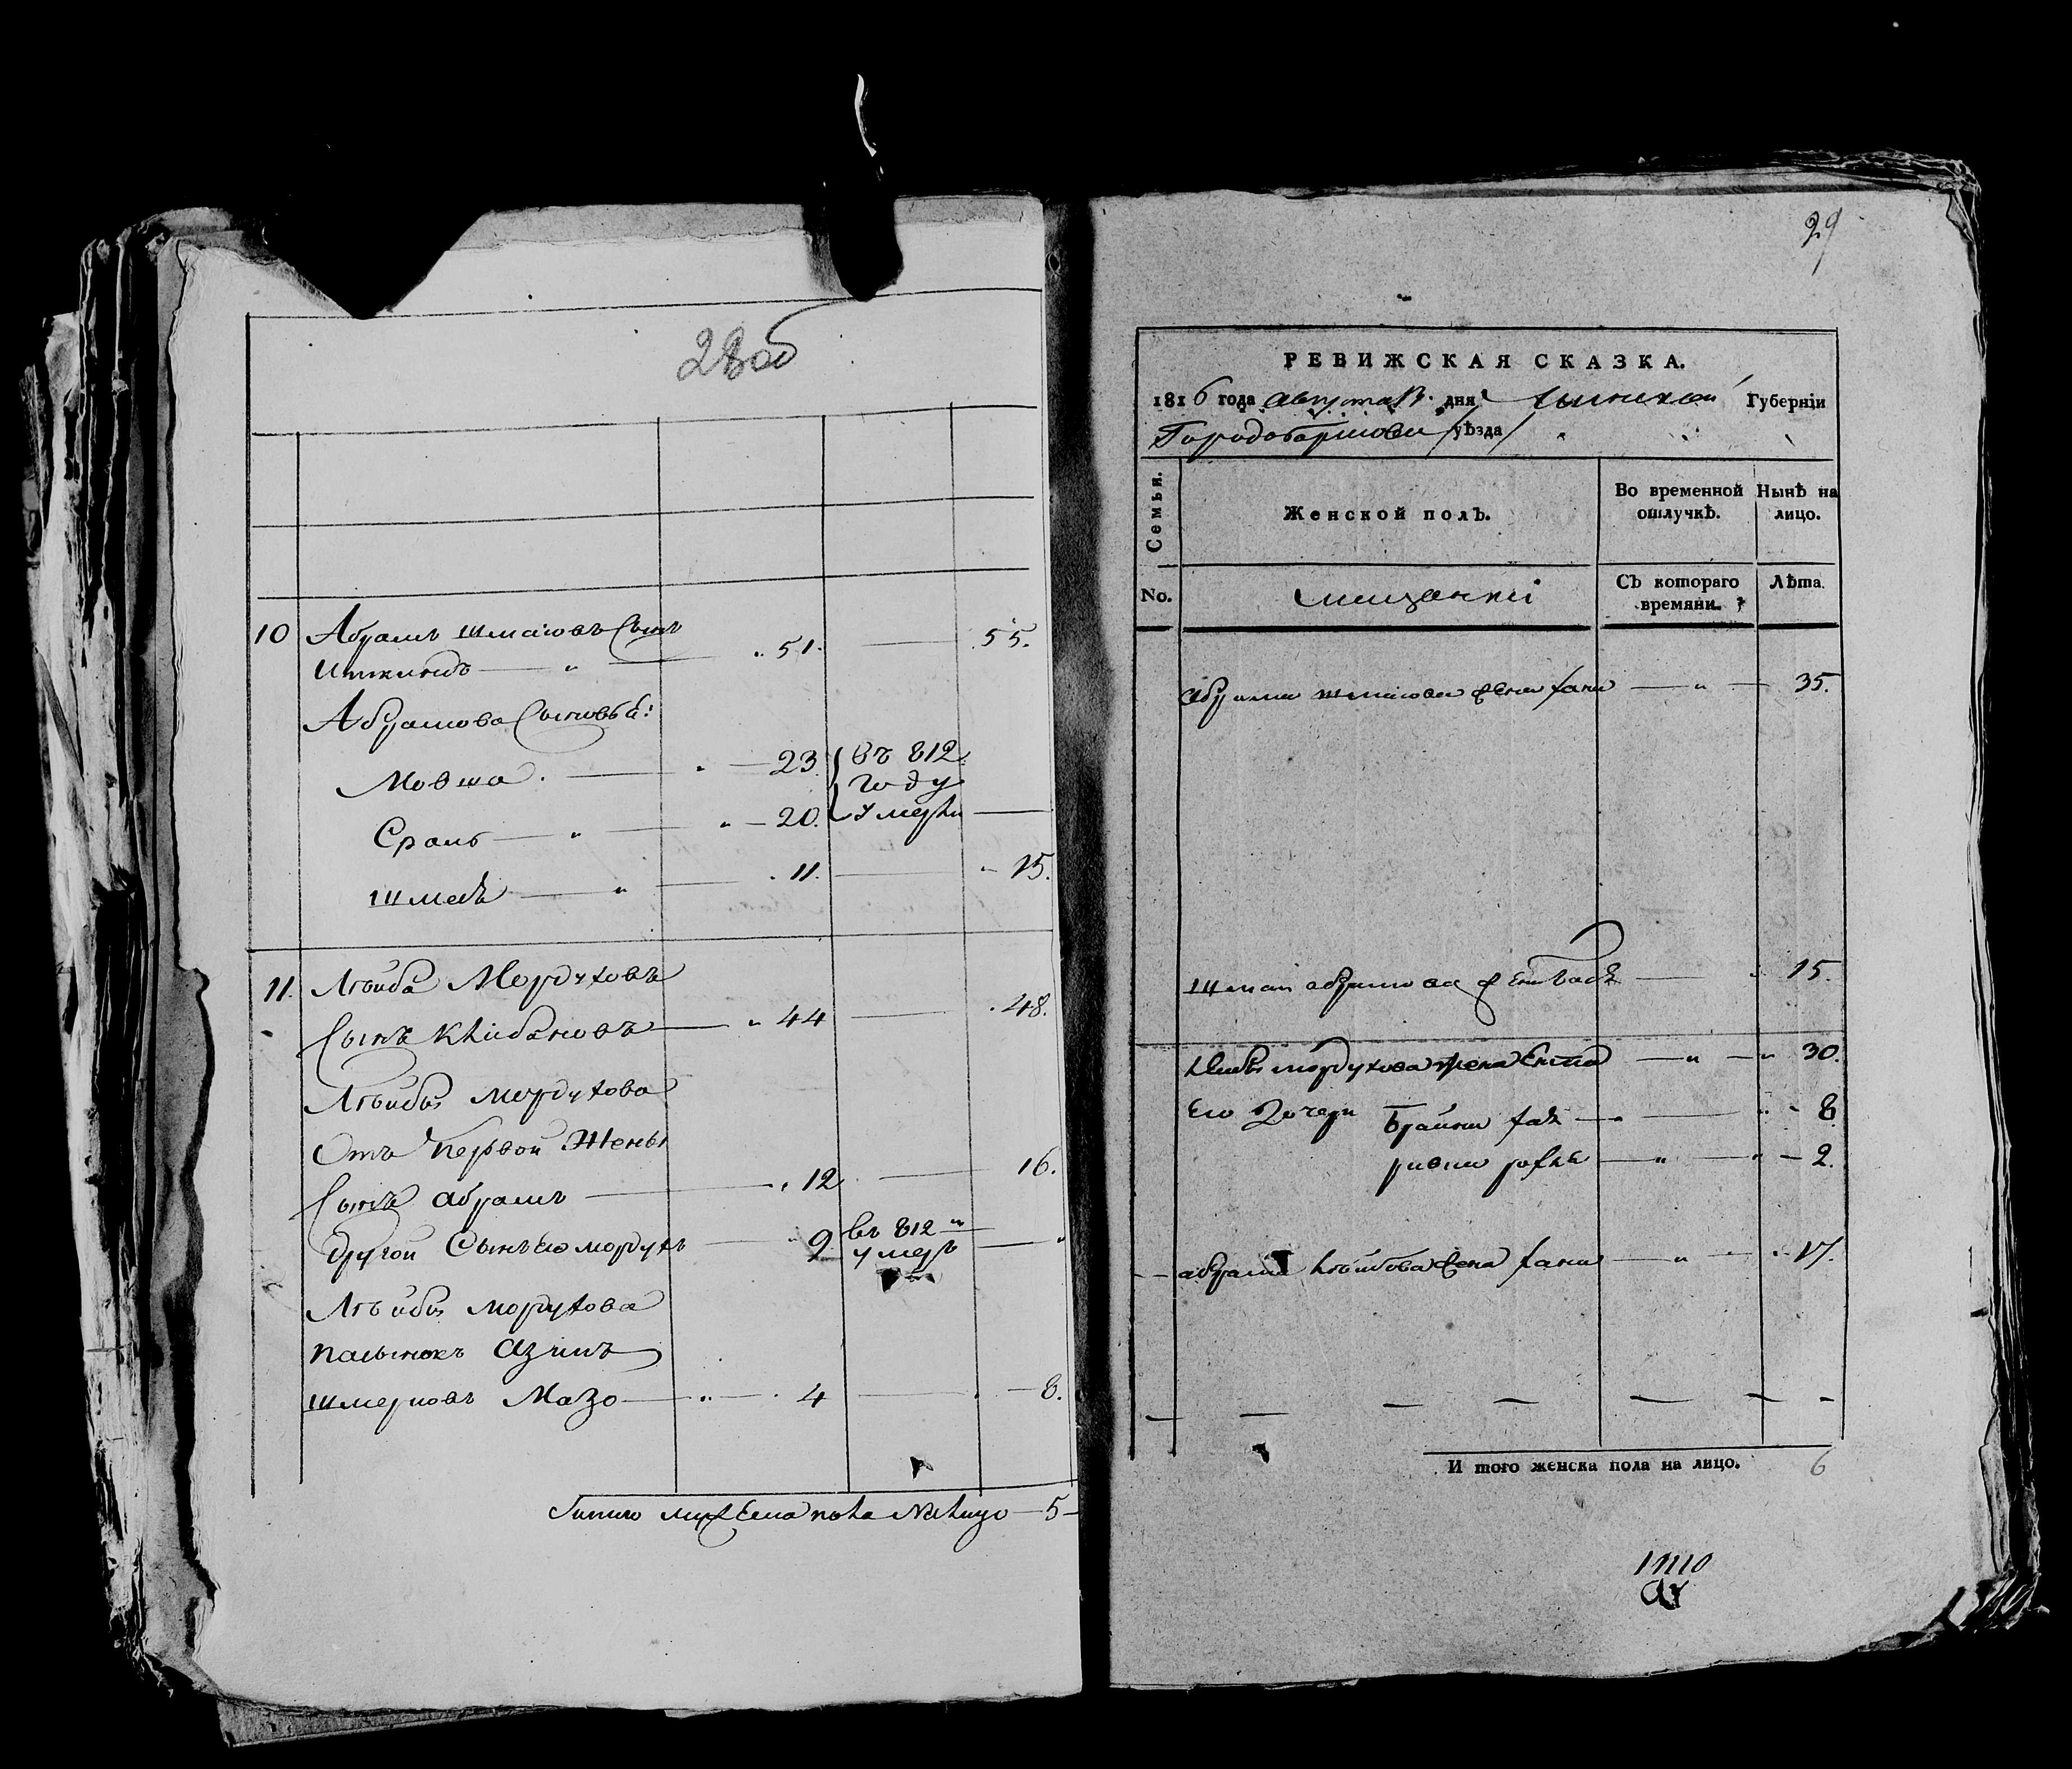 28об
10 Абрамъ Шмаiовъ Сынъ
Иткиндъ 51. 55.
Абрамова Сыновья:
Мовша 23. въ 812
году
Сроль 20. умерли
Шмая 11. 15.
11. Лейба Мордуховъ
Сынъ Клибановъ 44 48.
Лейбы Мордухова
Отъ Первой Жены
Сынъ Абрамъ 12 16.
Другой Сынъ Его Мордухъ 9 въ 812
умеръ
Лейбы Мордухова
Пасынокъ
Шмеровъ Мазо 4 8.
Итого мужеска пола на лицо 5
29
РЕВИЖСКАЯ СКАЗКА.
1816 года августа дня Минской Губернiи
Города Борисова уѣзда
Семьи. Женской полъ. Во временной отлучкѣ. Нынѣ на лицо.
No. мещанки Съ котораго времяни. Лѣта.
Абрама Шмаiова жена Хана 35.
Шмаи Абрамова жена 15.
Лейбы Мордухова жена 30.
Его Дочери Брайна 8.
2.
Абрама Лейбова жена Хана 17.
И того женска пола на лицо. 6